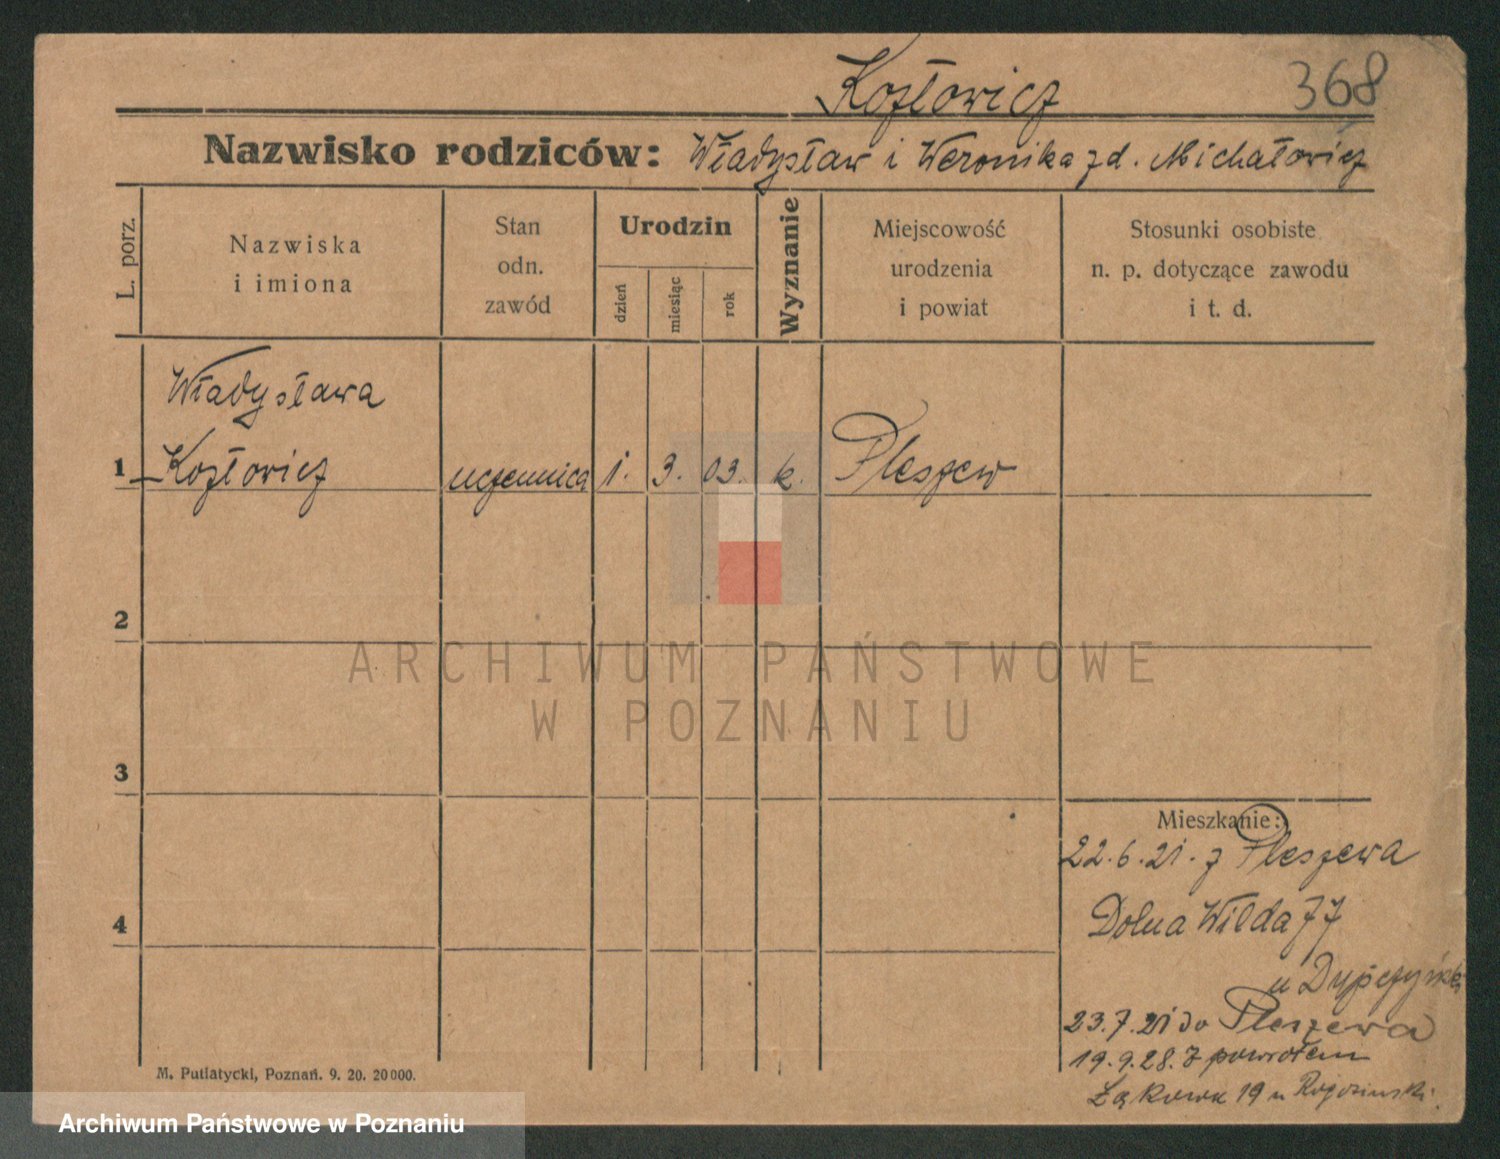 Kozłowicz
368
Nazwisko rodziców: Władysław i Weronika zd. Michałowicz
L. porz.
Nazwiska
i imiona
Stan
odn.
zawód
Urodzin
dzień
miesiąc
rok
Wyznanie
Miejscowość
urodzenia
i powiat
Stosunki osobiste
n. p. dotyczące zawodu
i t. d.
Władysława
1 Kozłowicz uczennica 1. 3. 03. k. Pleszew
2
ARCHIWUM PAŃSTWOWE
W POZNANIU
3
Mieszkanie:
22.6.21. z Pleszewa
4
Dolna Wilda 77
u
23.7.21 do Pleszewa
19.9.28. z powrotem
Łąkowa 19 u Rogozinski
M. Putiatycki, Poznań. 9. 20. 20000.
Archiwum Państwowe w Poznaniu